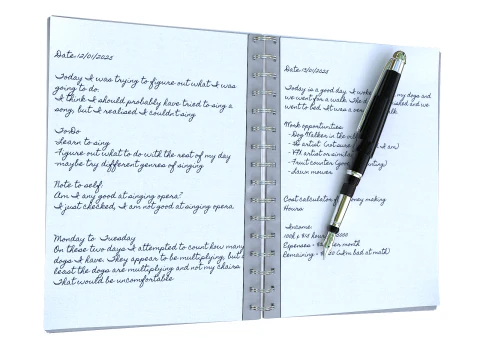 Date: 12/01/2025
Today I was trying to figure out what I was
going to do.
I think I should probably have tried to sing a
song, but I realised I couldn't sing
To Do
-Learn to sing
-Figure out what to do with the rest of my day
-maybe try different genres of singing
Note to self:
Am I any good at singing opera?
I just checked, I am not good at singing opera
Monday to Tuesday
On these two days I attempted to count how many
dogs I have. They appear to be multiplying, but
least the dogs are multiplying and not my chairs
That would be uncomfortable
Date: 13/01/2025
Today is a good day. I my dogs and
we went for a walk. The and we
went to bed. It was a
Work opportunities:
- Dog Walker in the
- artist (not sure I am)
- artist or
- Fruit counter
- Lawn mower
Cost calculator money making
Hours:
Income:
Expenses - per month
Remaining - (I am bad at math)